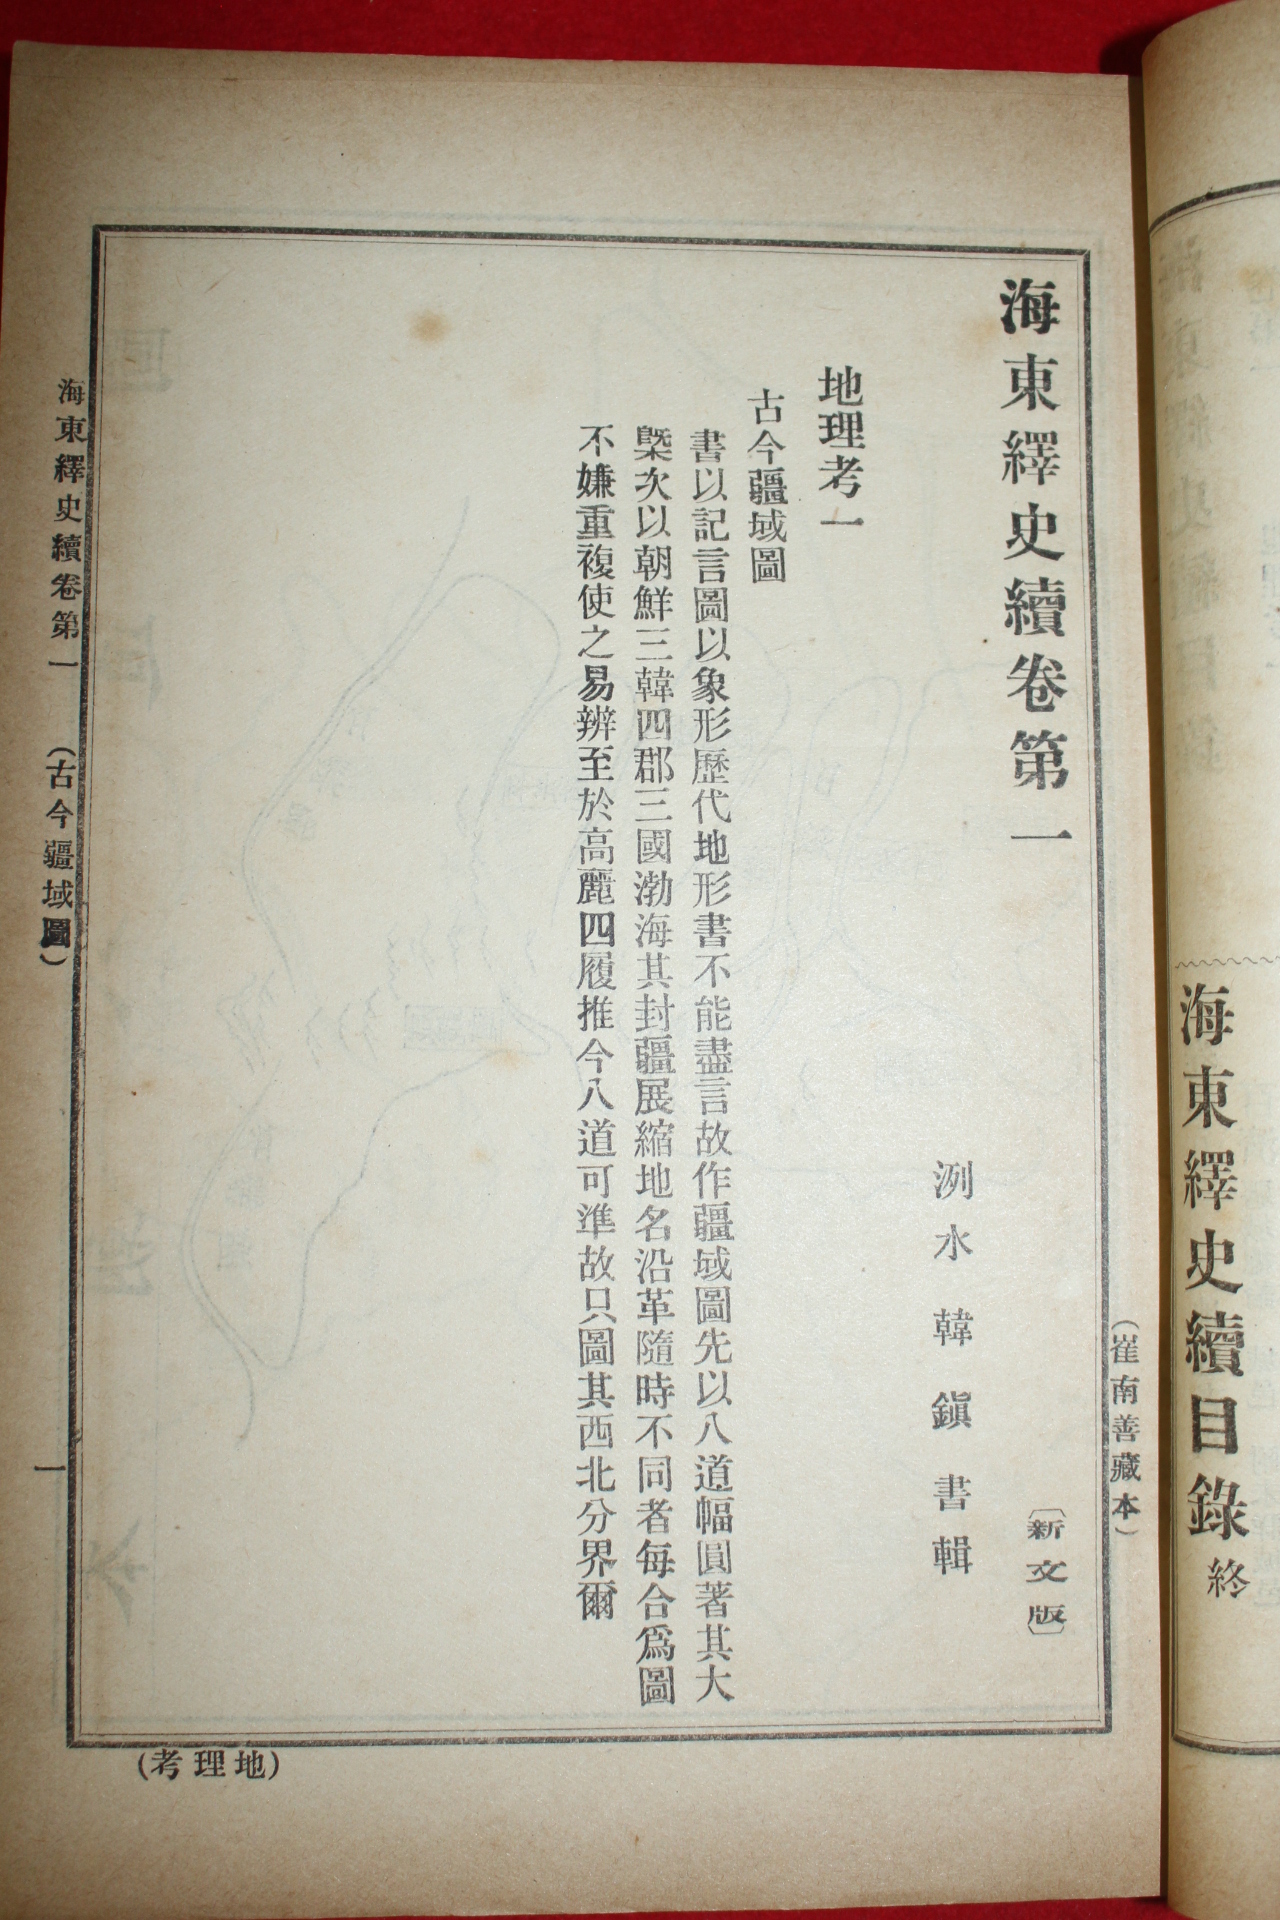 海東繹史續目錄終
(崔南善藏本)
海東繹史續卷第一
〔新文版〕
洌水韓鎭書輯
地理考一
古今疆域圖
書以記言圖以象形歷代地形書不能盡言故作疆域圖先以八道幅圓著其大
槩次以朝鮮三韓四郡三國渤海其封疆展縮地名沿革隨時不同者每合爲圖
不嫌重複使之易辨至於高麗四履推今八道可準故只圖其西北分界爾
海東繹史續卷第一 (古今疆域圖) 一
(地理考)